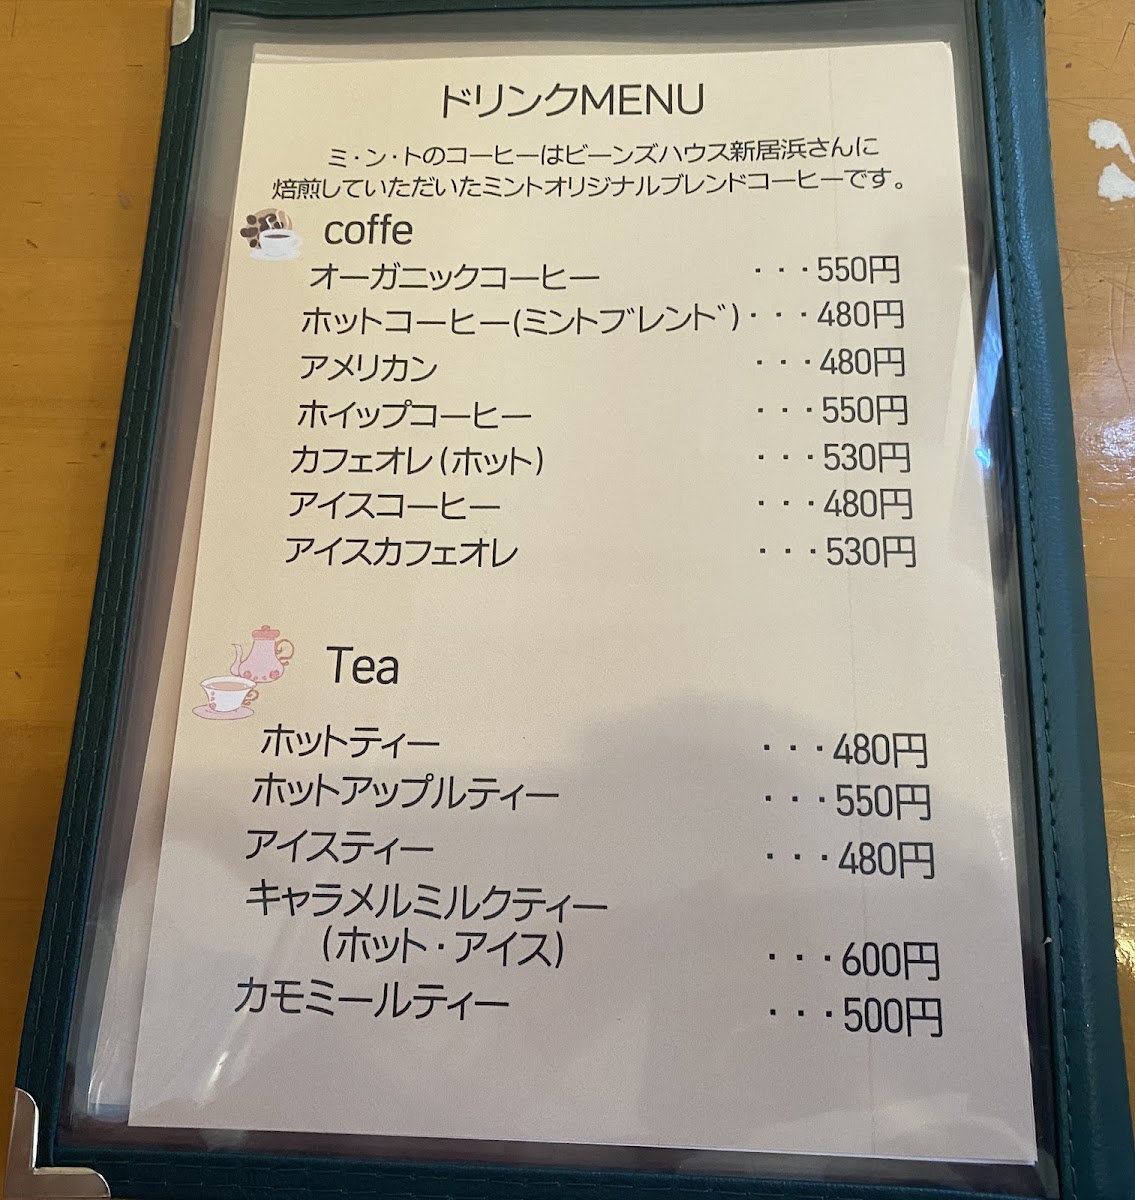 ドリンクMENU
ミ・ン・トのコーヒーはビーンズハウス新居浜さんに
焙煎していただいたミントオリジナルブレンドコーヒーです。
coffe
オーガニックコーヒー ・・・550円
ホットコーヒー(ミントブレンド)・・・480円
アメリカン ・・・480円
ホイップコーヒー ・・・550円
カフェオレ(ホット) ・・・530円
アイスコーヒー ・・・480円
アイスカフェオレ ・・・530円
Tea
ホットティー ・・・480円
ホットアップルティー ・・・550円
アイスティー ・・・480円
キャラメルミルクティー
(ホット・アイス) ・・・600円
カモミールティー ・・・500円